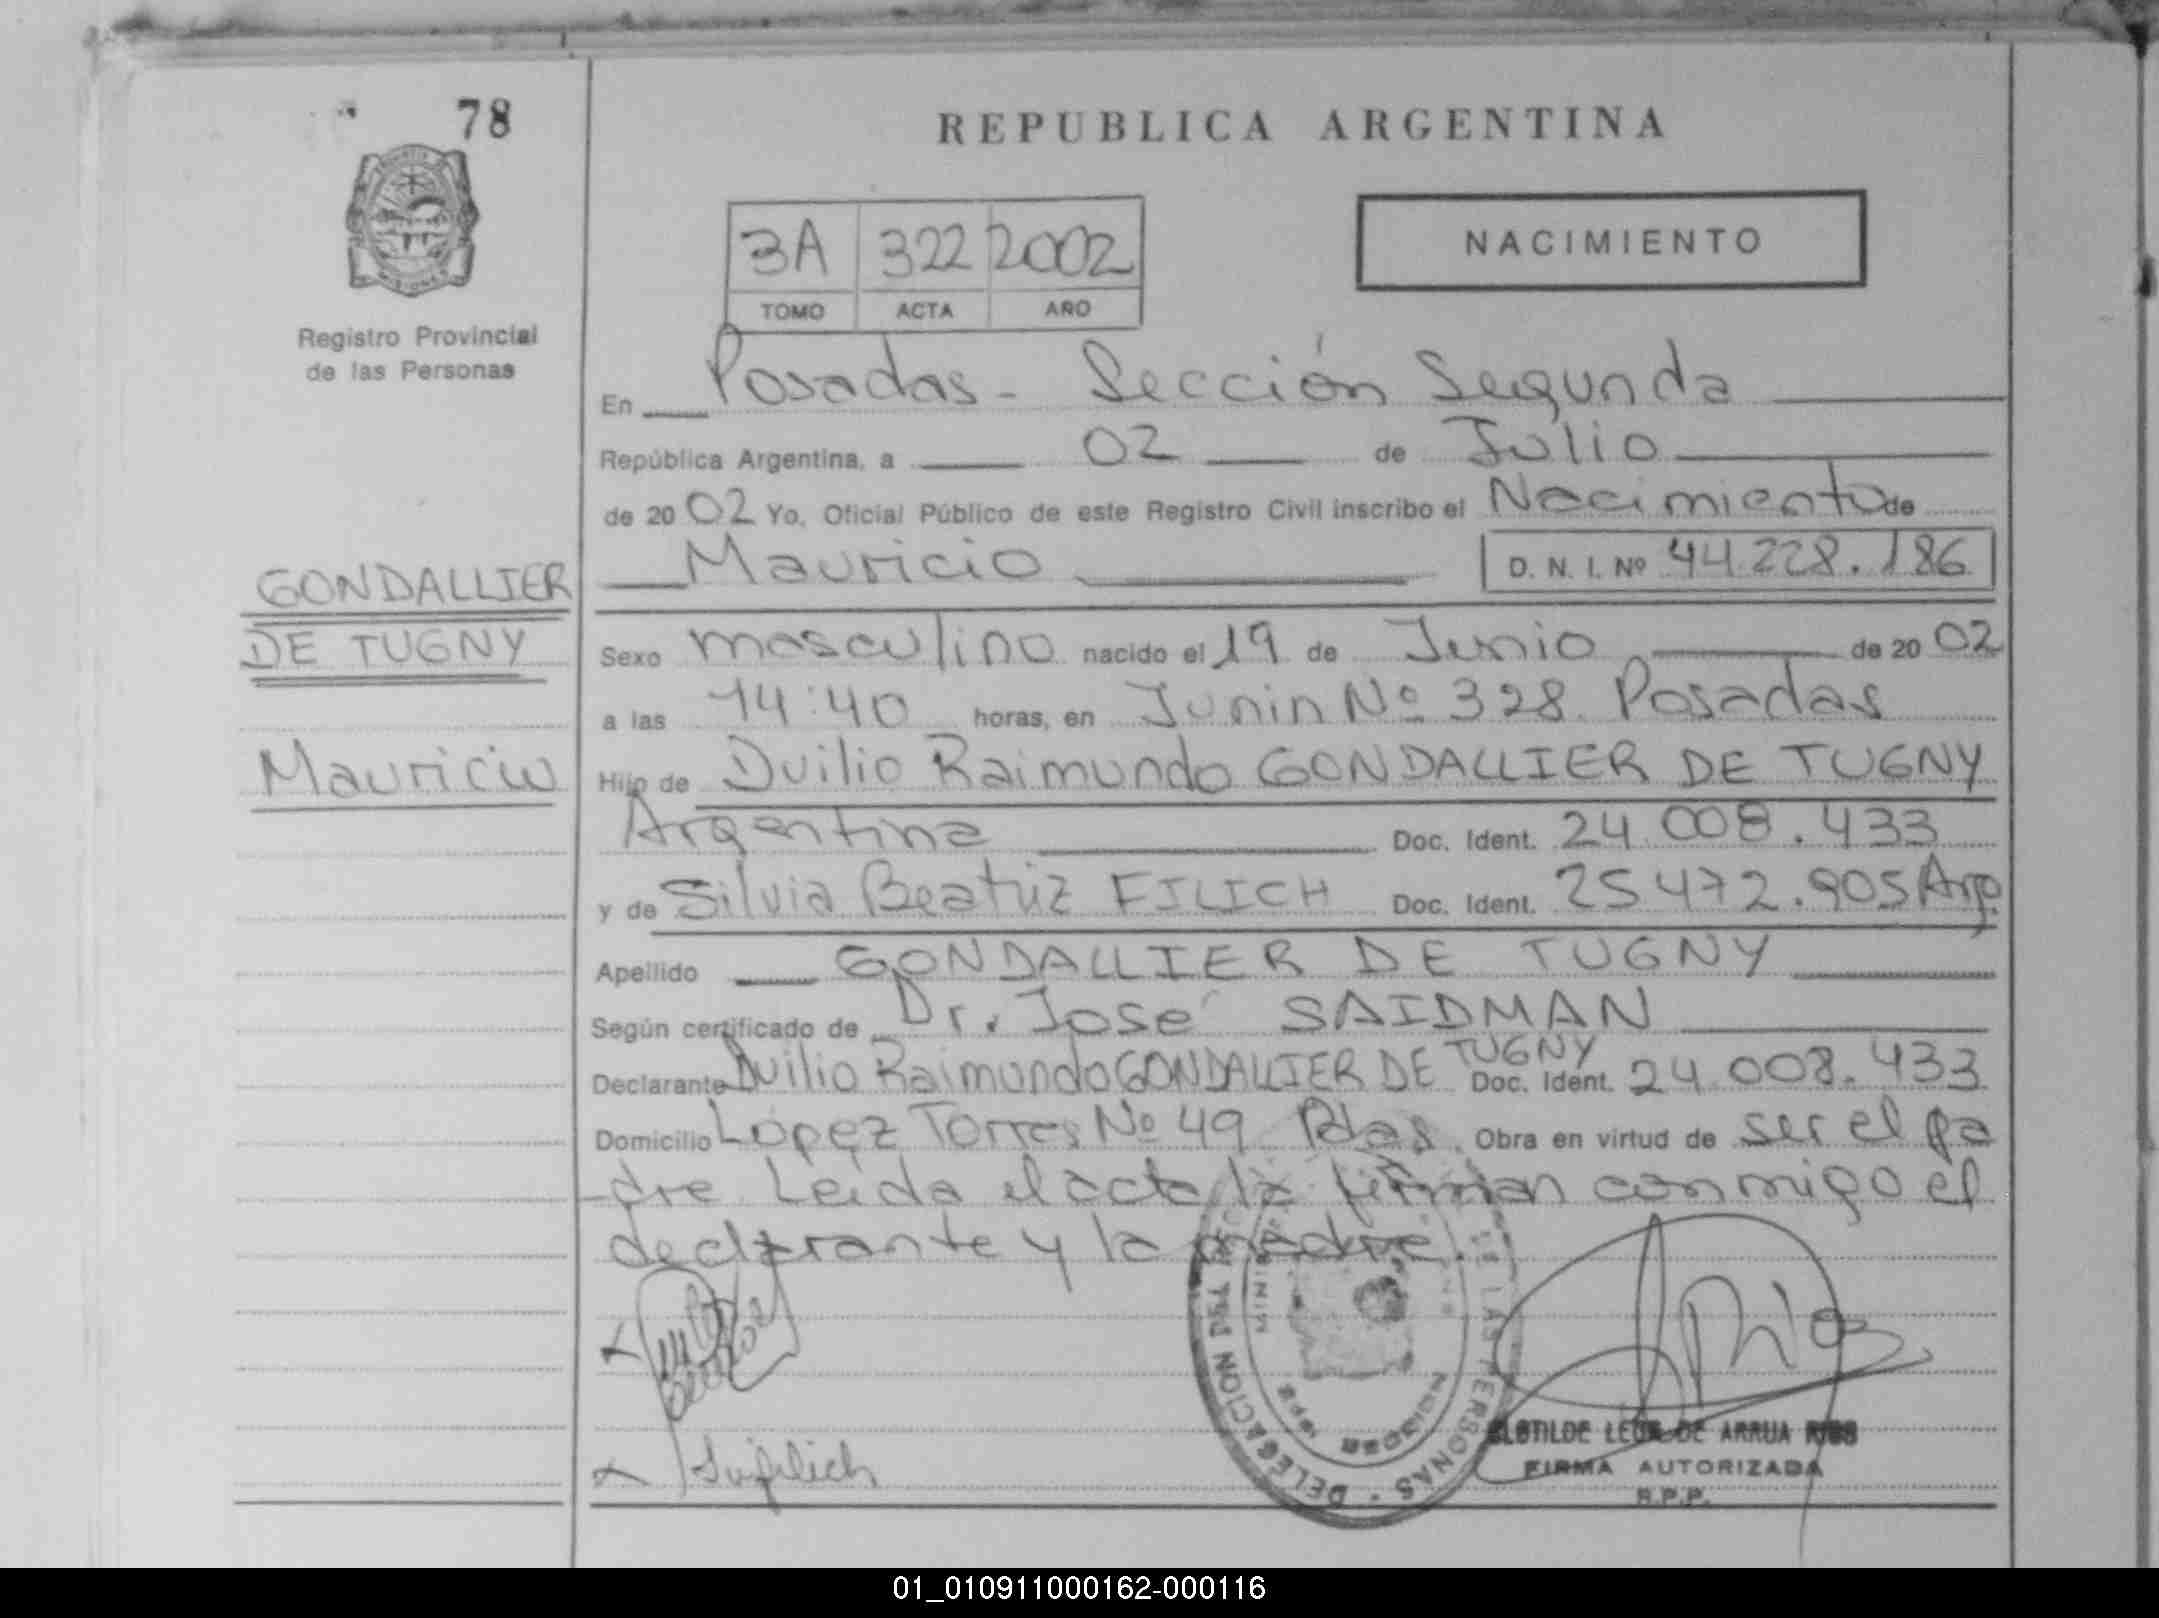 78
REPUBLICA ARGENTINA
3A 322 2002
TOMO ACTA AÑO
NACIMIENTO
Registro Provincial
de las Personas
En Posadas - Sección Segunda
República Argentina, a 02 de Julio
de 2002 Yo, Oficial Público de este Registro Civil inscribo el Nacimiento de
Mauricio D. N. I. Nº 44.228.186
GONDALLIER
DE TUGNY
Mauricio
Sexo masculino nacido el 19 de Junio de 2002
a las 14:40 horas, en Junin Nº 328 Posadas
Hijo de Duilio Raimundo GONDALLIER DE TUGNY
Argentina Doc. Ident. 24.008.433
y de Silvia Beatriz FILICH Doc. Ident. 25472.905 Arg
Apellido GONDALLIER DE TUGNY
Según certificado de Dr. José SAIDMAN
Declarante Duilio Raimundo GONDALLIER DE TUGNY Doc. Ident. 24.008.433
Domicilio López Torres Nº 49 Pdas. Obra en virtud de ser el pa
dre. Leida el acta la firman conmigo el
declarante y la madre.
DELEGACION DE LAS PERSONAS
MISIONES
CLOTILDE DE ARRUA RIOS
FIRMA AUTORIZADA
R.P.P.
01_010911000162-000116